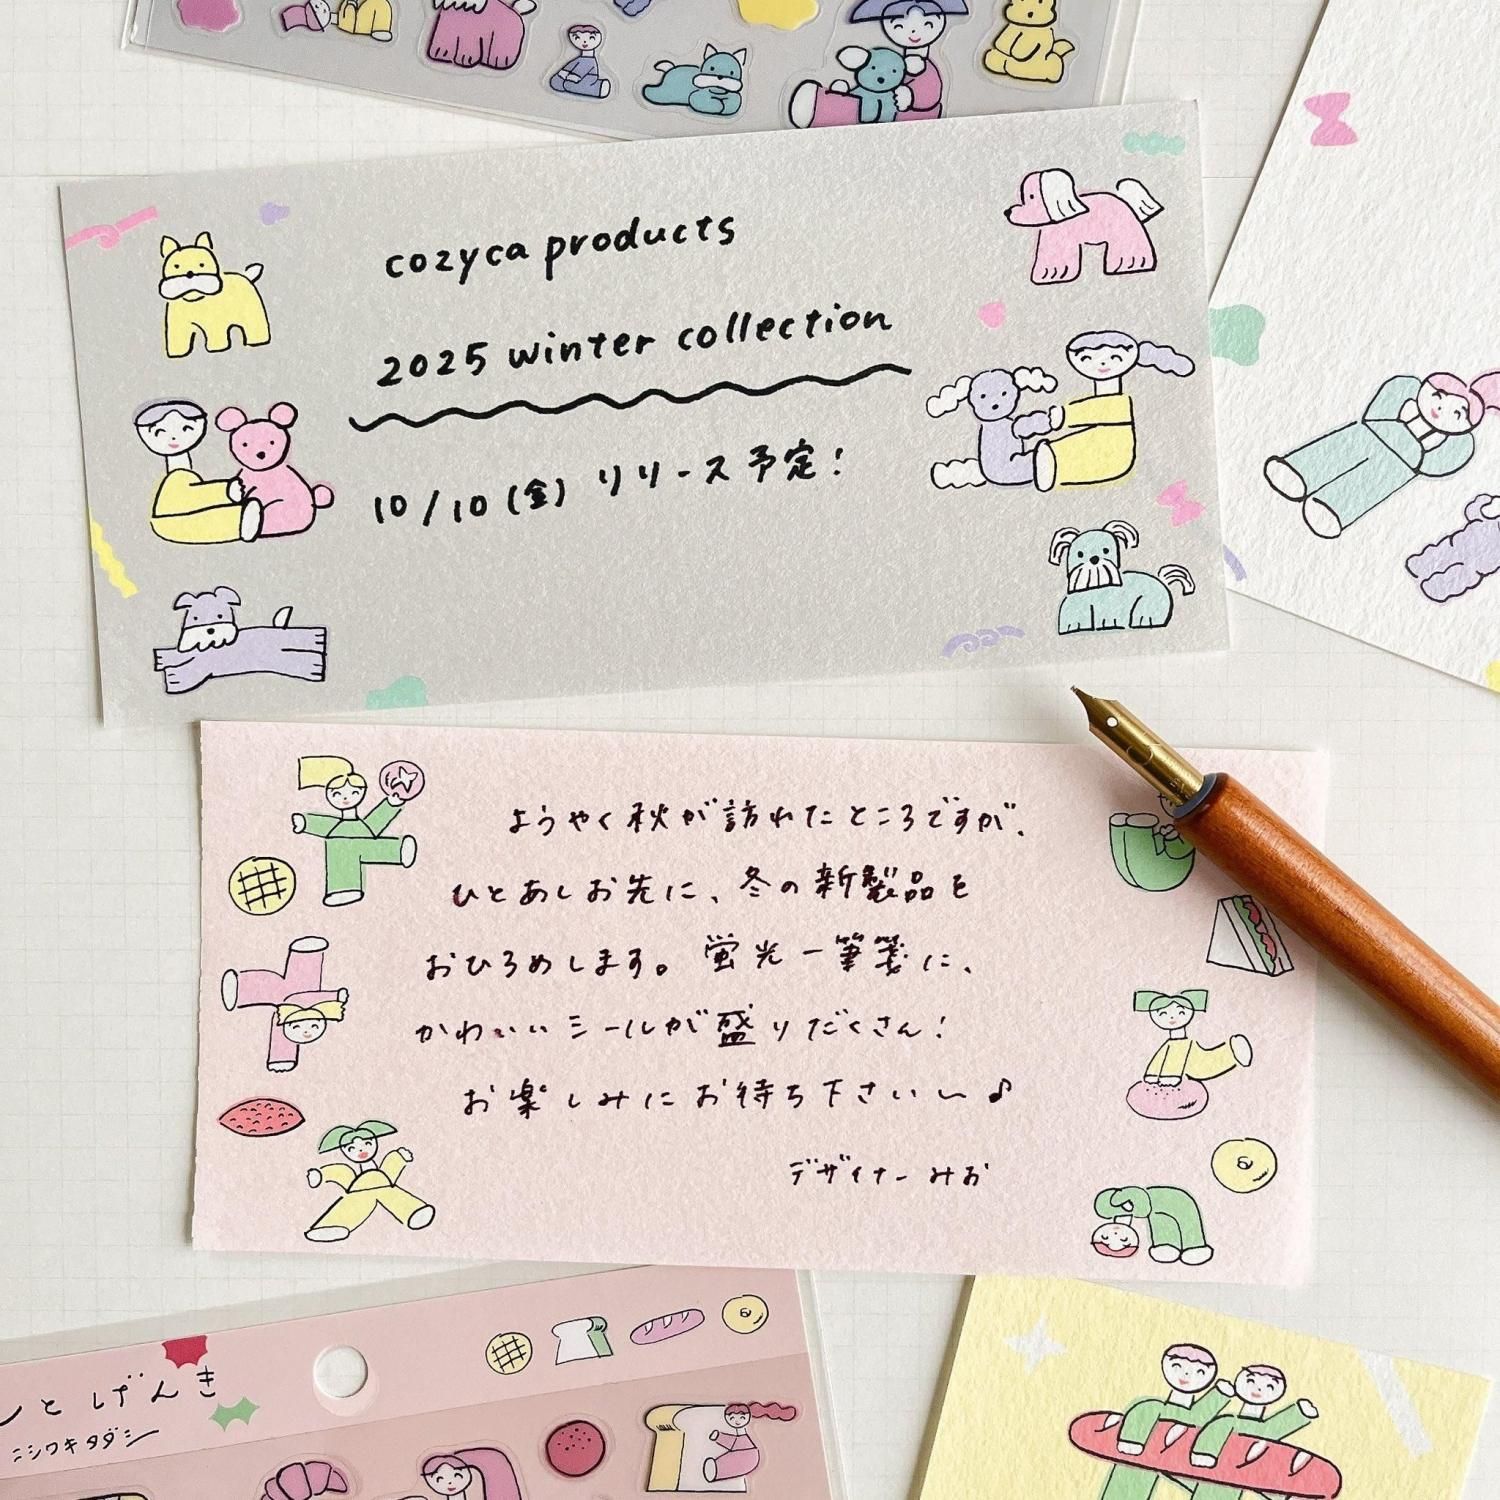 cozyca products
2025 winter collection
10/10(金) リリース予定!
ようやく秋が訪れたところですが、
ひとあしお先に、冬の新製品を
おひろめします。蛍光一筆箋に、
かわいいシールが盛りだくさん!
お楽しみにお待ち下さい〜♪
デザイナーみお
とげんき
ニシワキタダシ